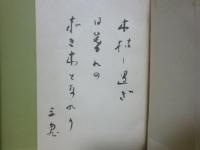 木枯し過ぎ
日暮れの
赤き木となれり
三鬼